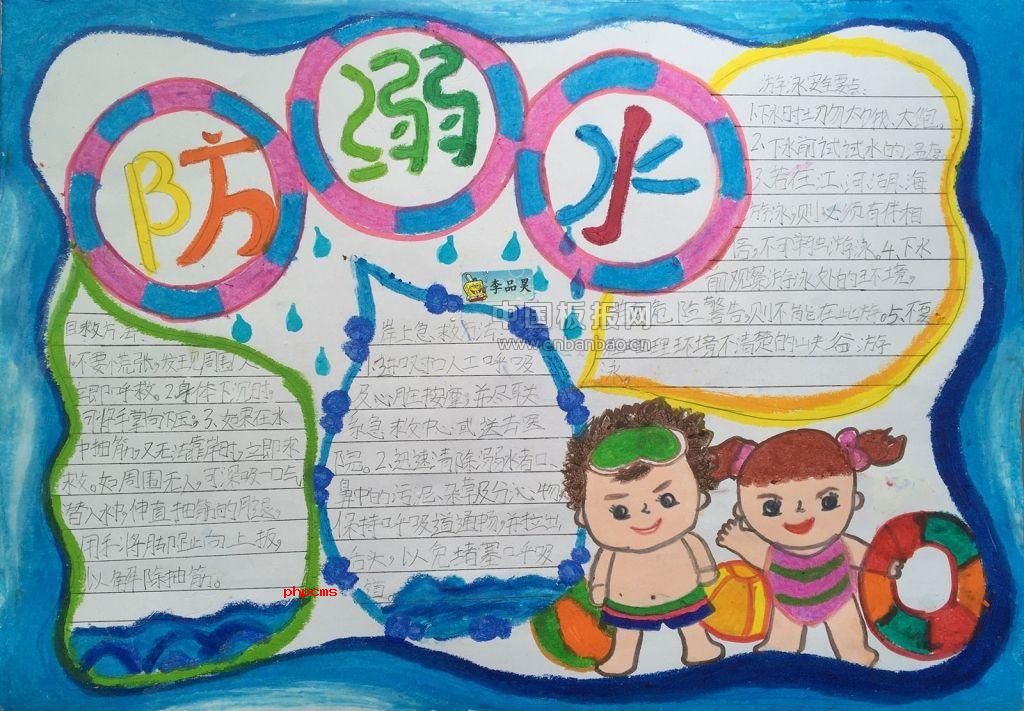 防溺水
李品昊
中国板报网
www.cnbanbao.cn
游泳安全要点:
1.下水时切勿太饿、太饱。
2、下水前试试水的温度
3、若在江、河、湖、海
游泳,则必须有伴相
陪,不可单独游泳。4.下水
前观察游泳处的环境。
危险警告,则不能在此游。5、不要
地理环境不清楚的山夹谷游
泳。
自救方法:
1.不要慌张,发现周围人
立即呼救。2.身体下沉时,
可将手掌向下压;3、如果在水
中抽筋,又无法靠岸时,立即求
救。如周围无人,可深吸一口气
潜入水中,伸直抽筋的腿,
用手将脚趾向上扳,
以解除抽筋。
phpcms
岸上急救方法
人工呼吸
及心脏按摩,并尽早联
系急救中心或送去医
院。2.迅速清除溺水者口、
鼻中的污泥、杂草及分泌物
保持呼吸道通畅,并拉出
舌头,以免堵塞呼吸
道。